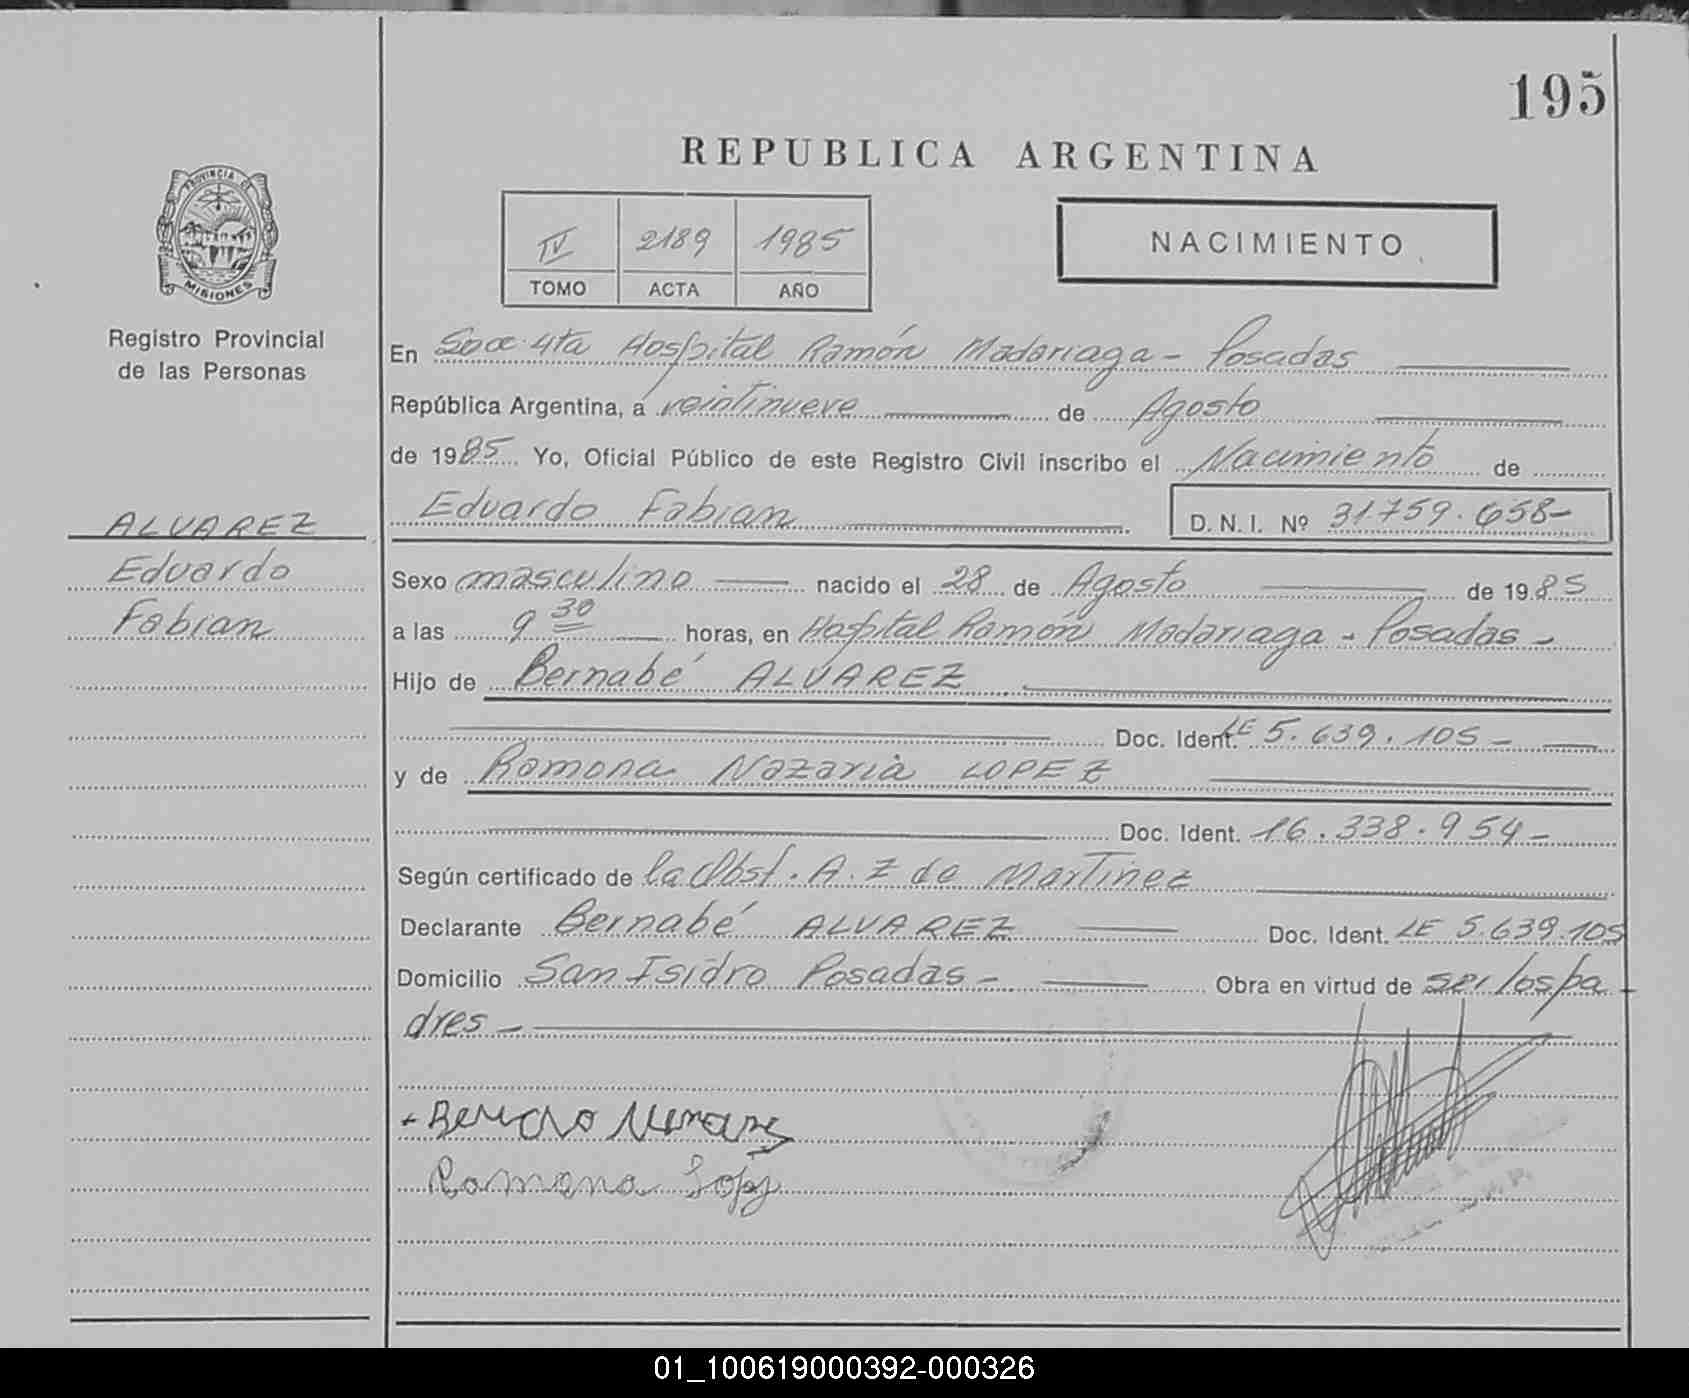 195
REPUBLICA ARGENTINA
PROVINCIA DE
MISIONES
Registro Provincial
de las Personas
IV 2189 1985
TOMO ACTA AÑO
NACIMIENTO
En Secc 4ta Hospital Ramón Madariaga - Posadas
República Argentina, a veintinueve de Agosto
de 1985 Yo, Oficial Público de este Registro Civil inscribo el Nacimiento de
Eduardo Fabian D. N. I. Nº 31.759.658-
ALVAREZ
Eduardo
Fabian
Sexo masculino nacido el 28 de Agosto de 1985
a las 9 30 horas, en Hospital Ramón Madariaga - Posadas -
Hijo de Bernabé ALVAREZ
Doc. Ident. LE 5.639.105 -
y de Ramona Nazaria LOPEZ
Doc. Ident. 16.338.954 -
Según certificado de la Obst. A. Z de Martinez
Declarante Bernabé ALVAREZ Doc. Ident. LE 5.639.105
Domicilio San Isidro Posadas - Obra en virtud de ser los pa
dres -
Ramona Lopz
01_100619000392-000326